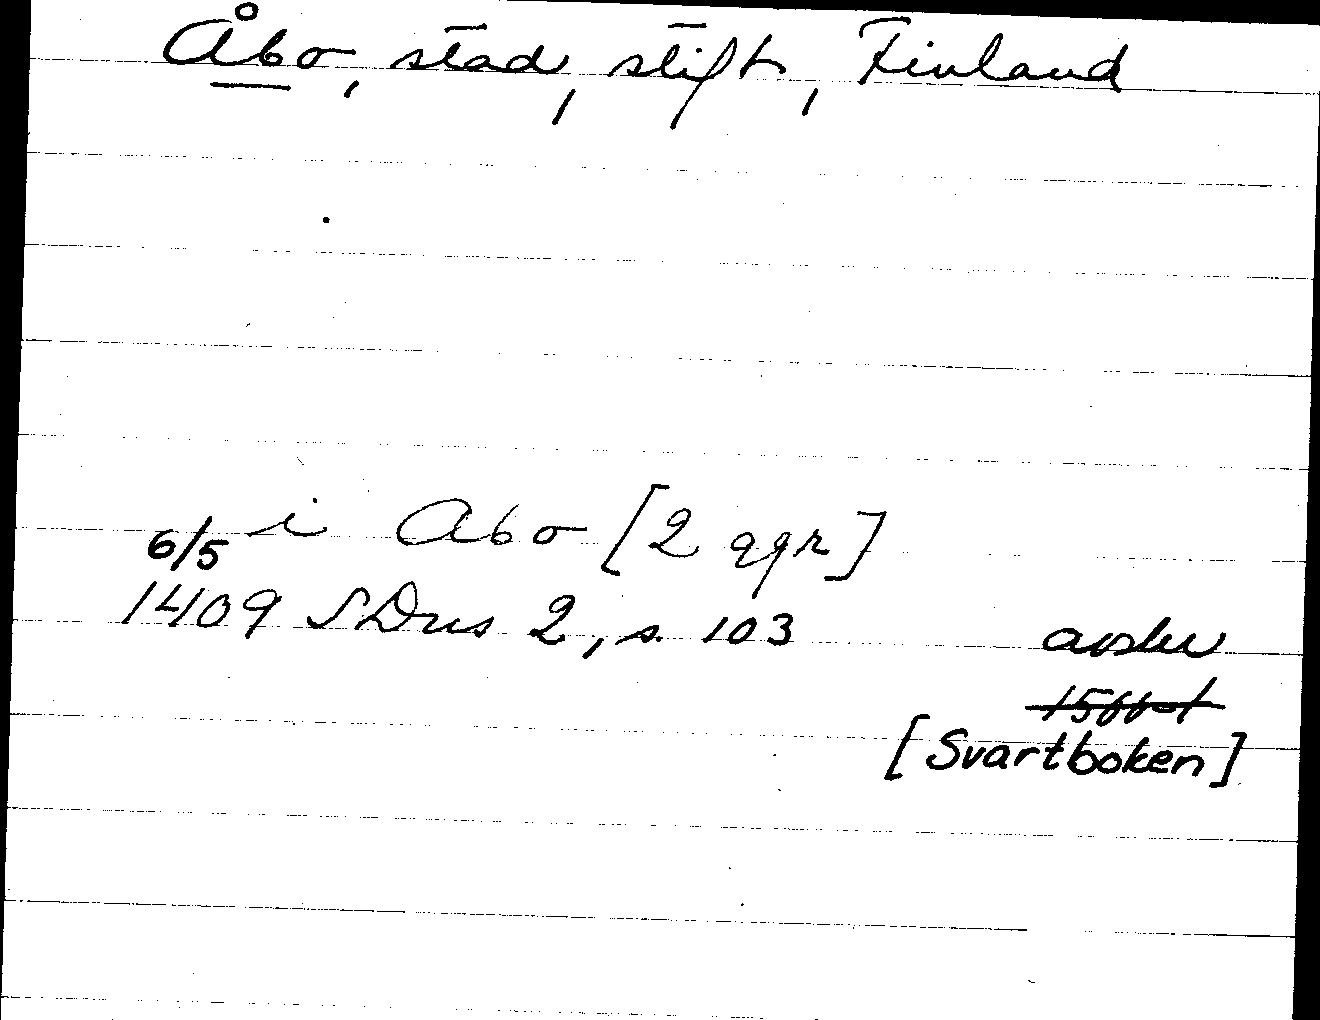 Åbo, stad, stift, Finland
i Abo [2 ggr]
6/5
1409 SDns 2, s. 103
avskr
[Svartboken]